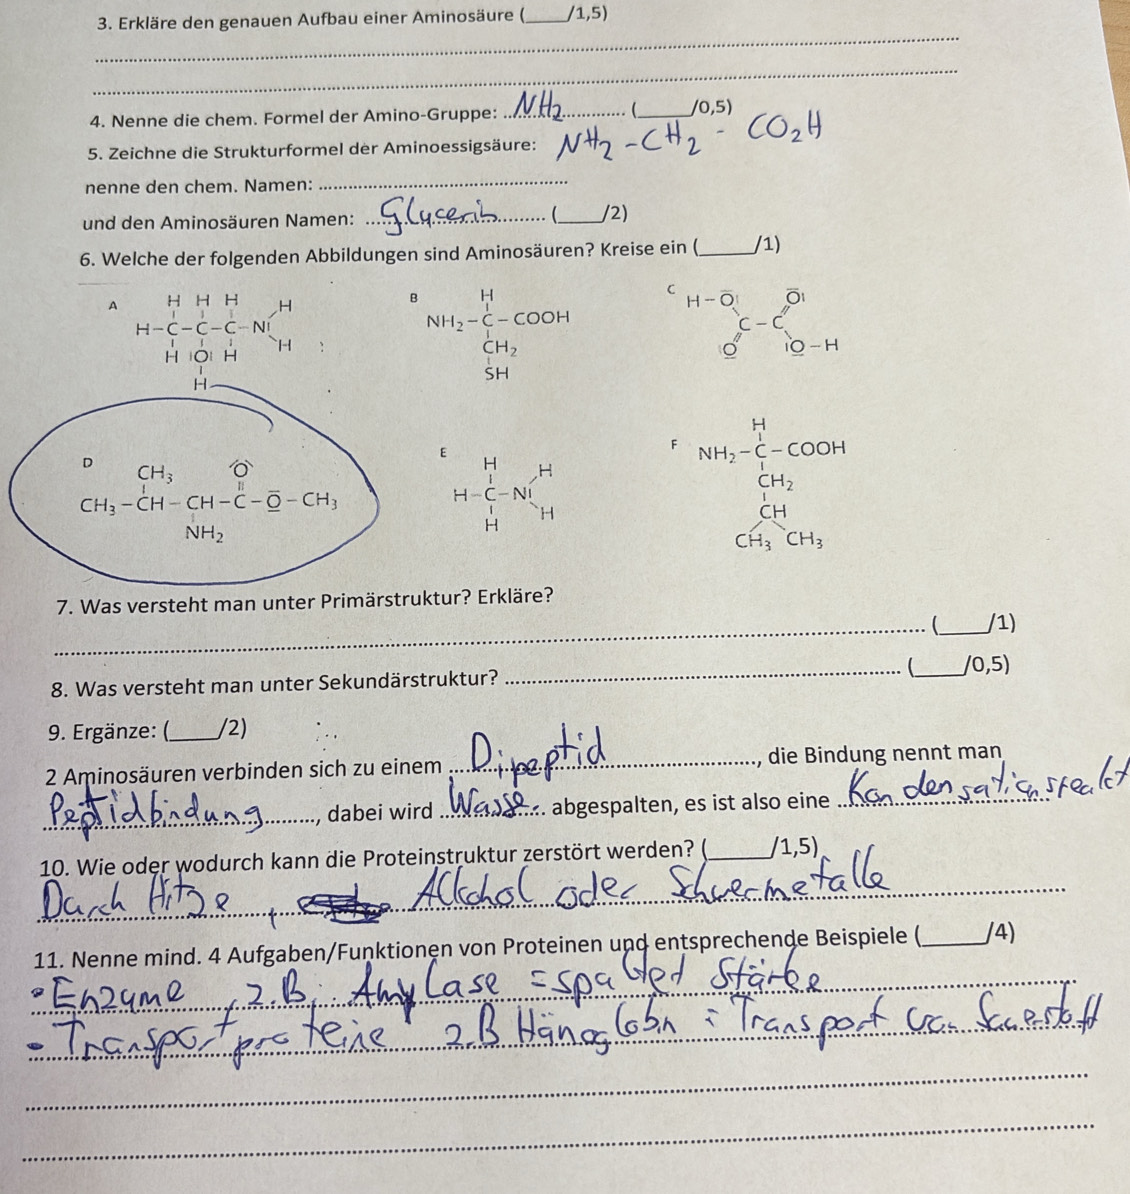 3. Erkläre den genauen Aufbau einer Aminosäure (_____/1,5)
4. Nenne die chem. Formel der Amino-Gruppe: NH2 (_____/0,5)
5. Zeichne die Strukturformel der Aminoessigsäure: NH2 - CH2 - CO2H
nenne den chem. Namen:
und den Aminosäuren Namen: Glycerin (_____/2)
6. Welche der folgenden Abbildungen sind Aminosäuren? Kreise ein (_____/1)
A
H H H H
H-C-C-C-NI
H IOI H H
H
B
H
NH₂-C-COOH
CH₂
SH
C
H-O̅I O̅I
C-C
IO̲ IO̲-H
D
CH₃ O
CH₃-CH-CH-C-O̲̅-CH₃
NH₂
E
H H
H-C-NI
H H
F
H
NH₂-C-COOH
CH₂
CH
CH₃ CH₃
7. Was versteht man unter Primärstruktur? Erkläre?
(_____/1)
8. Was versteht man unter Sekundärstruktur? (_____/0,5)
9. Ergänze: (_____/2)
2 Aminosäuren verbinden sich zu einem Dipeptid, die Bindung nennt man
Peptidbindung, dabei wird Wasser abgespalten, es ist also eine Kondensationsreakt
10. Wie oder wodurch kann die Proteinstruktur zerstört werden? (_____/1,5)
Durch Hitze, Alkohol oder Schwermetalle
11. Nenne mind. 4 Aufgaben/Funktionen von Proteinen und entsprechende Beispiele (_____/4)
• Enzyme, z.B. Amylase = spalted Stärke
- Transportproteine z.B Hämoglobin = Transport von Sauerstoff